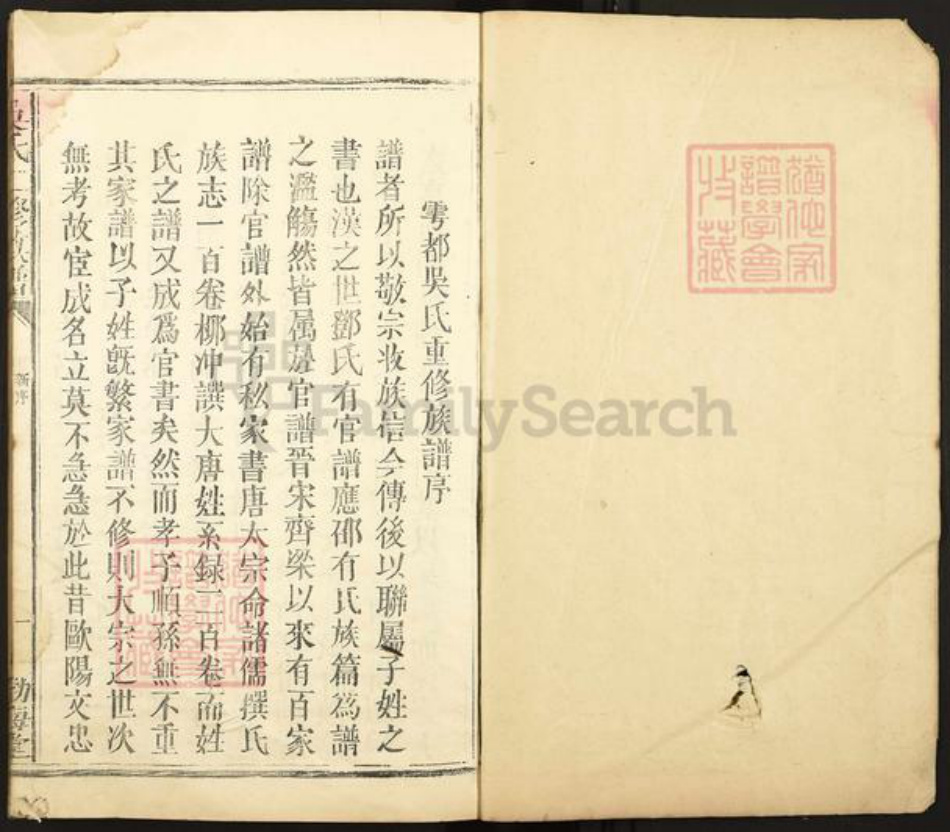 雩都吳氏重修族譜序
譜者所以敬宗收族信今傳後以聯屬子姓之
書也漢之世鄧氏有官譜應邵有氏族篇為譜
之濫觴然皆属於官譜晉宋齊梁以來有百家
譜除官譜外始有私家書唐太宗命諸儒撰氏
族志一百卷栁冲譔大唐姓系録二百卷而姓
氏之譜又成爲官書矣然而孝子順孫無不重
其家譜以子姓旣繁家譜不修則大宗之世次
無考故宦成名立莫不急急於此昔歐陽文忠
吳氏二修族譜
新序
一
勃海堂
猶他家
譜學會
收藏
FamilySearch